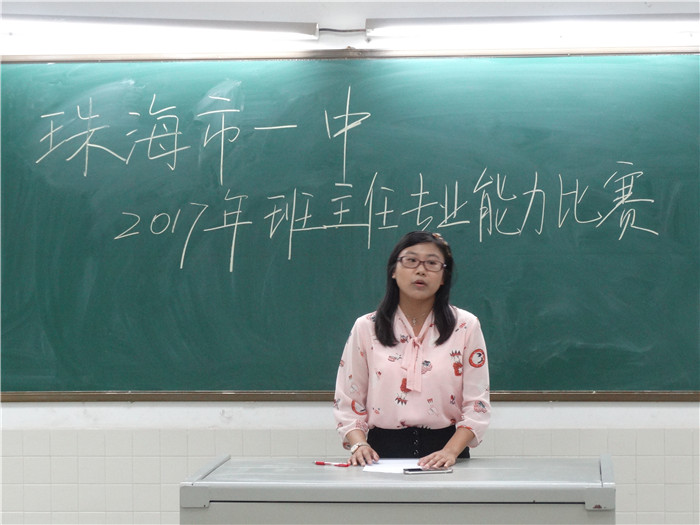 珠海市一中
2017年班主任专业能力比赛